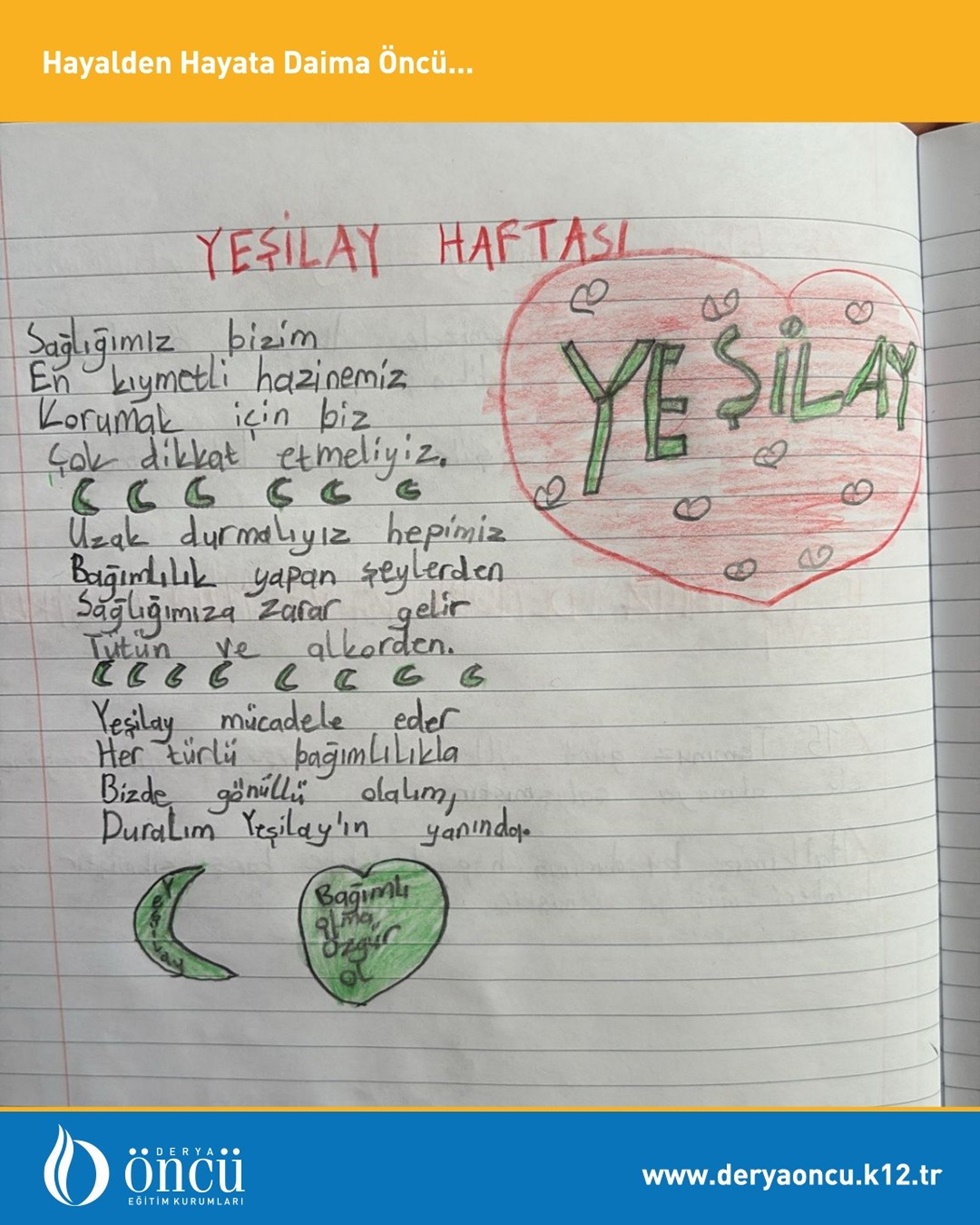 Hayalden Hayata Daima Öncü...
YEŞİLAY HAFTASI
YEŞİLAY
Sağlığımız bizim
En kıymetli hazinemiz
Korumak için biz
Çok dikkat etmeliyiz.
Uzak durmalıyız hepimiz
Bağımlılık yapan şeylerden
Sağlığımıza zarar gelir
Tütün ve alkorden.
Yeşilay mücadele eder
Her türlü bağımlılıkla
Bizde gönüllü olalım,
Duralım Yeşilay'ın yanında.
Yeşilay
Bağımlı
olma
Özgür
ol
DERYA
öncü
EĞİTİM KURUMLARI
www.deryaoncu.k12.tr